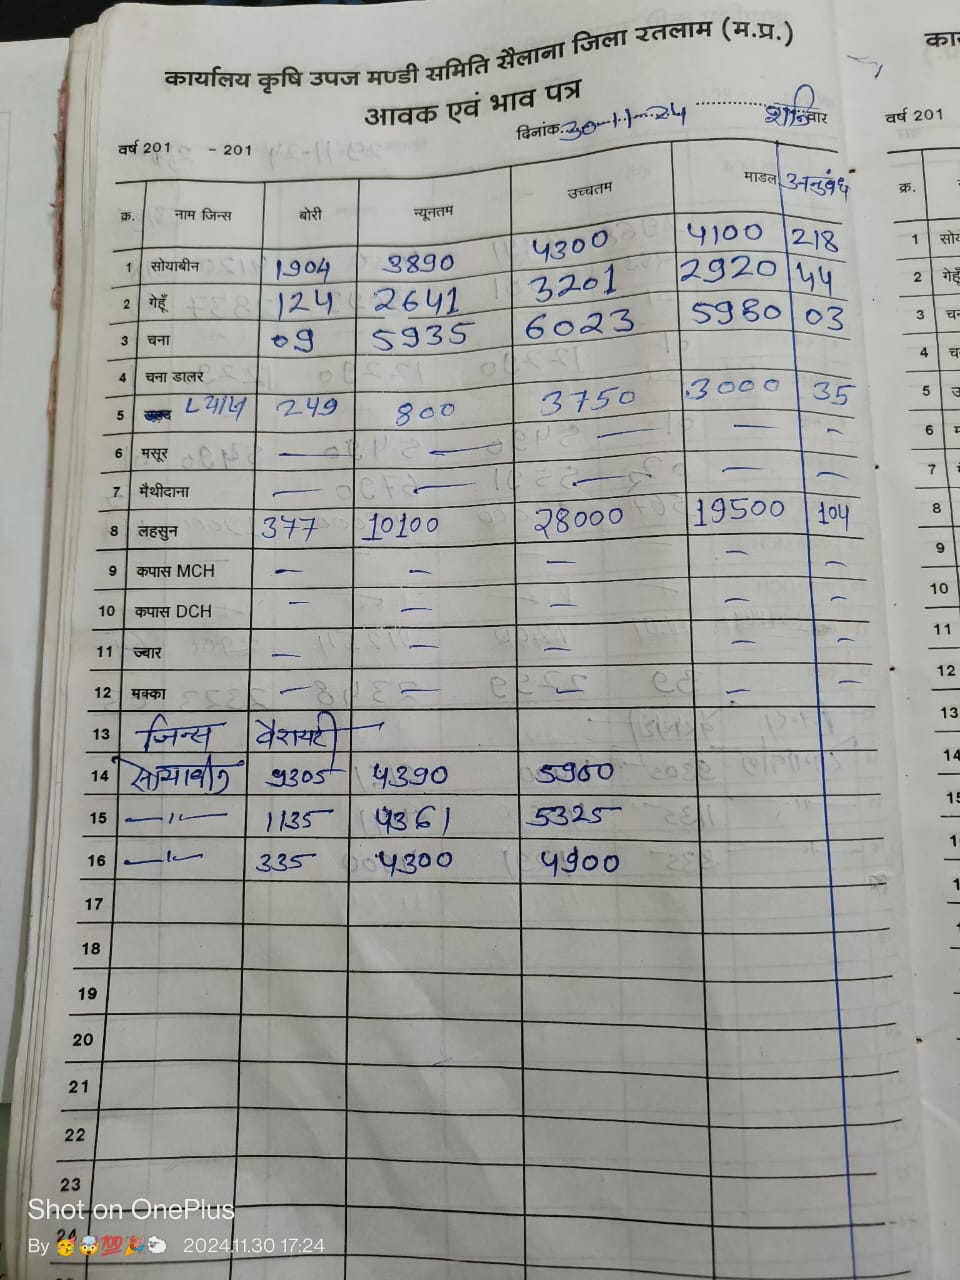 कार्यालय कृषि उपज मण्डी समिति सैलाना जिला रतलाम (म.प्र.)
आवक एवं भाव पत्र
दिनांक 30-11-24 शनिवार
वर्ष 201 - 201
क्र. नाम जिन्स बोरी न्यूनतम उच्चतम माडल अनुबंध
1 सोयाबीन 1904 3890 4300 4100 218
2 गेहूँ 124 2641 3201 2920 44
3 चना 09 5935 6023 5980 03
4 चना डालर
5 249 800 3750 3000 35
6 मसूर — — — — -
7 मैथीदाना — — — — -
8 लहसुन 377 10100 28000 19500 104
9 कपास MCH - - - - -
10 कपास DCH - - - - -
11 ज्वार - - - - -
12 मक्का - - - - -
13 जिन्स वैरायटी
14 सोयाबीन 9305 4390 5950
15 —"— 1135 4361 5325
16 —"— 335 4300 4900
17
18
19
20
21
22
23
24
वर्ष 201
क्र.
1
2
3
4
5
6
7
8
9
10
11
12
13
14
Shot on OnePlus
By 🥳🤯💯🎉🐑 2024.11.30 17:24